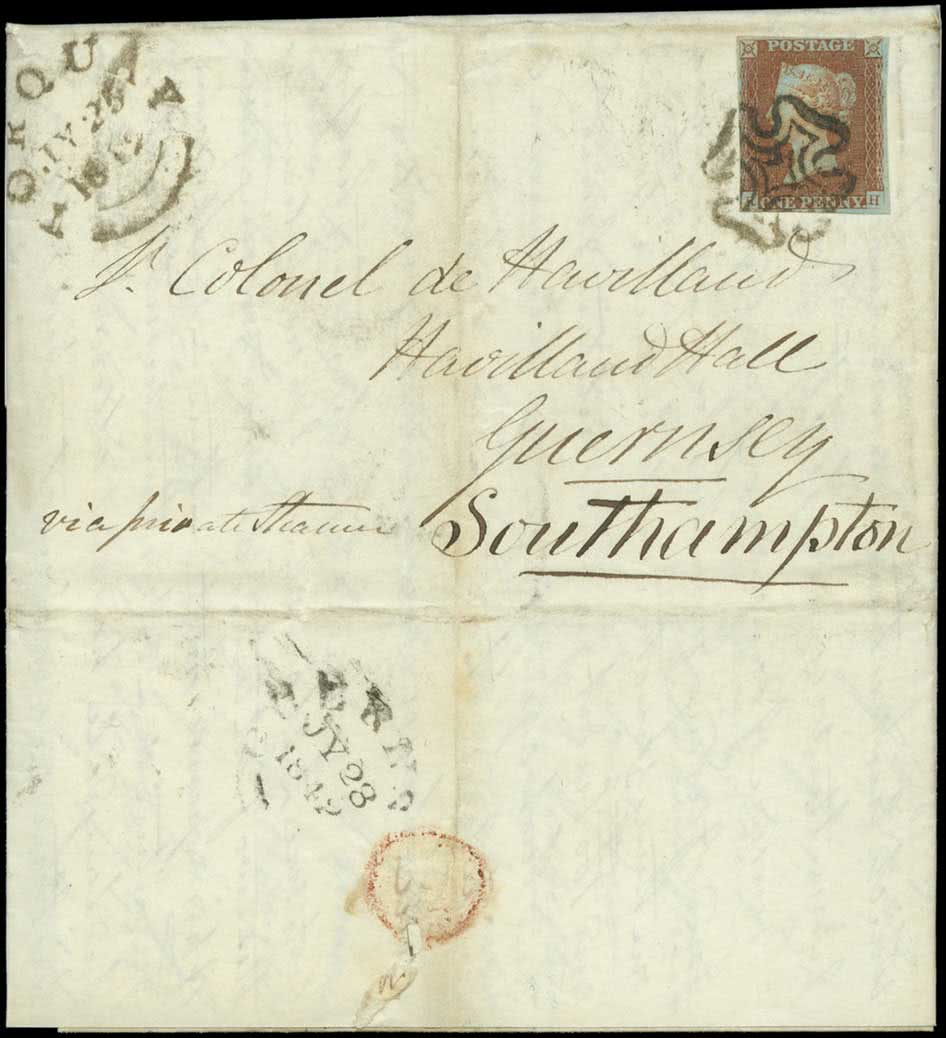 TORQUAY
JY 25
1842
POSTAGE
ONE PENNY
H
Lr Colonel de Havilland
Havilland Hall
Guernsey
via private Steamer
Southampton
JY 28
1842